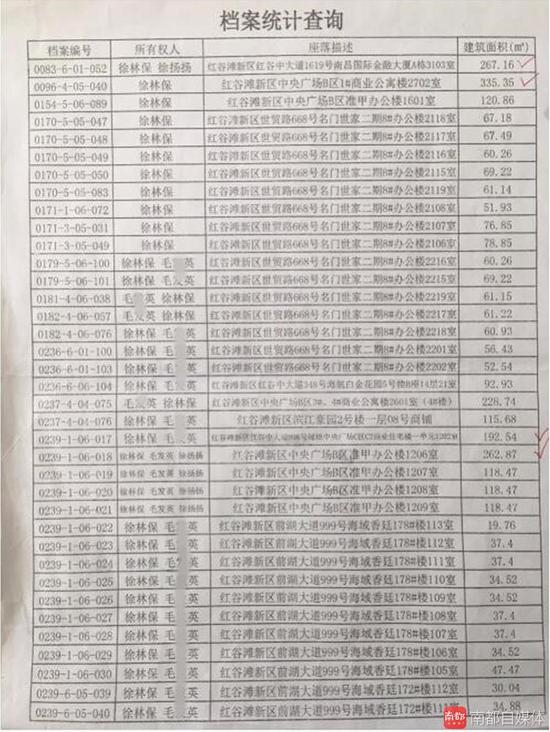 档案统计查询
档案编号 所有权人 座落描述 建筑面积(㎡)
0083-6-01-052 徐林保 徐扬扬 红谷滩新区红谷中大道1619号南昌国际金融大厦A栋3103室 267.16
0096-4-05-040 徐林保 红谷滩新区中央广场B区1#商业公寓楼2702室 335.35
0154-5-06-089 徐林保 红谷滩新区中央广场B区准甲办公楼1601室 120.86
0170-5-05-047 徐林保 红谷滩新区世贸路668号名门世家二期8#办公楼2118室 67.18
0170-5-05-048 徐林保 红谷滩新区世贸路668号名门世家二期8#办公楼2117室 67.49
0170-5-05-049 徐林保 红谷滩新区世贸路668号名门世家二期8#办公楼2116室 60.26
0170-5-05-050 徐林保 红谷滩新区世贸路668号名门世家二期8#办公楼2115室 69.22
0170-5-05-083 徐林保 红谷滩新区世贸路668号名门世家二期8#办公楼2119室 61.14
0171-1-06-072 徐林保 红谷滩新区世贸路668号名门世家二期8#办公楼2108室 51.93
0171-3-05-031 徐林保 红谷滩新区世贸路668号名门世家二期8#办公楼2107室 76.85
0171-3-05-049 徐林保 红谷滩新区世贸路668号名门世家二期8#办公楼2106室 78.85
0179-5-06-100 徐林保 毛 英 红谷滩新区世贸路668号名门世家二期8#办公楼2216室 60.26
0179-5-06-101 徐林保 毛 英 红谷滩新区世贸路668号名门世家二期8#办公楼2215室 69.22
0181-4-06-038 毛 英 徐林保 红谷滩新区世贸路668号名门世家二期8#办公楼2219室 61.15
0182-4-06-057 毛发英 徐林保 红谷滩新区世贸路668号名门世家二期8#办公楼2217室 61.22
0182-4-06-076 徐林保 毛 英 红谷滩新区世贸路668号名门世家二期8#办公楼2218室 60.93
0236-6-01-100 徐林保 毛 英 红谷滩新区世贸路668号名门世家二期8#办公楼2201室 56.43
0236-6-01-103 徐林保 毛 英 红谷滩新区世贸路668号名门世家二期8#办公楼2202室 52.54
0236-6-06-104 徐林保 毛 英 红谷滩新区红谷中大道348号海航白金花园5号楼B座14层21室 92.93
0237-4-04-075 毛发英 徐林保 红谷滩新区中央广场B区3#、4#商业公寓楼2601室（4#楼） 228.74
0237-4-04-076 徐林保 毛 英 红谷滩新区滨江豪园2号楼一层08号商铺 115.68
0239-1-06-017 徐林保 毛发英 徐扬扬 192.54
0239-1-06-018 徐林保 毛发英 徐扬扬 红谷滩新区中央广场B区准甲办公楼1206室 262.87
0239-1-06-019 徐林保 毛发英 徐扬扬 红谷滩新区中央广场B区准甲办公楼1207室 118.47
0239-1-06-020 徐林保 毛发英 徐扬扬 红谷滩新区中央广场B区准甲办公楼1208室 118.47
0239-1-06-021 徐林保 毛发英 徐扬扬 红谷滩新区中央广场B区准甲办公楼1209室 118.47
0239-1-06-022 徐林保 毛 英 红谷滩新区前湖大道999号海域香廷178#楼113室 19.76
0239-1-06-023 徐林保 毛 英 红谷滩新区前湖大道999号海域香廷178#楼112室 37.4
0239-1-06-024 徐林保 毛 英 红谷滩新区前湖大道999号海域香廷178#楼111室 37.4
0239-1-06-025 徐林保 毛 英 红谷滩新区前湖大道999号海域香廷178#楼110室 34.52
0239-1-06-026 徐林保 毛 英 红谷滩新区前湖大道999号海域香廷178#楼109室 34.52
0239-1-06-027 徐林保 毛 英 红谷滩新区前湖大道999号海域香廷178#楼108室 37.4
0239-1-06-028 徐林保 毛 英 红谷滩新区前湖大道999号海域香廷178#楼107室 37.4
0239-1-06-029 徐林保 毛 英 红谷滩新区前湖大道999号海域香廷178#楼106室 34.52
0239-1-06-030 徐林保 毛 英 红谷滩新区前湖大道999号海域香廷178#楼105室 47.47
0239-6-05-039 徐林保 毛 英 红谷滩新区前湖大道999号海域香廷172#楼112室 30.04
0239-6-05-040 徐林保 毛 英 红谷滩新区前湖大道999号海域香廷172#楼111室 34.88
南都 南都自媒体